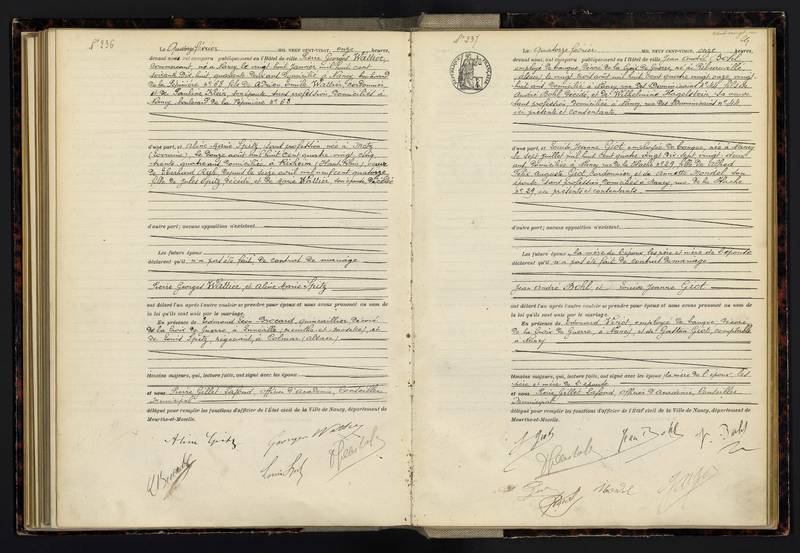 N° 236
Le Quatorze février MIL NEUF CENT-VINGT, onze heures,
devant nous ont comparu publiquement en l'Hôtel de ville Pierre Georges Wallier,
né à Nancy le vingt huit janvier mil huit cent
soixante dix huit, quarante deux ans domicilié à Nancy boulevard
de la Pépinière n° 63 fils de Wallier, Cordonnier
et de Pauline Klein, son épouse sans profession domiciliés à
Nancy boulevard de la Pépinière n° 63
d'une part, et Aline Marie Spitz, sans profession, née à Metz
(Lorraine), le douze août mil huit cent quatre vingt cinq
trente quatre ans domiciliée à Rixheim (Haut-Rhin), veuve
de Eberhard depuis le seize avril mil neuf cent quatorze
fille de Jules Spitz décédé, et de Marie Wallier, son épouse décédée
d'autre part; aucune opposition n'existant.
Les futurs époux
déclarent qu'il n'a pas été fait de contrat de mariage
Pierre Georges Wallier, et Aline Marie Spitz
ont déclaré l'un après l'autre vouloir se prendre pour époux et nous avons prononcé au nom de
la loi qu'ils sont unis par le mariage.
En présence de Edmond Léon Brocard, quincaillier décoré
de la Croix de Guerre, à Lunéville (Meurthe et Moselle), et
de Louis Spitz, négociant, à Colmar (Alsace)
témoins majeurs, qui, lecture faite, ont signé avec les époux
et nous Pierre Gillet Lafond, officier d'Académie, Conseiller
Municipal
délégué pour remplir les fonctions d'officier de l'État civil de la Ville de Nancy, département de
Meurthe-et-Moselle.
Aline Spitz
Georges Wallier
Louis Spitz
N° 237
Le Quatorze février MIL NEUF CENT-VINGT, onze heures,
devant nous ont comparu publiquement en l'Hôtel de ville Jean André Bohl,
employé de banque, décoré de la Croix de Guerre, né à
Alsace, le vingt trois août mil huit cent quatre vingt onze, vingt
huit ans domicilié à Nancy rue des Dominicains n° 44 fils de
André Bohl décédé, et de sa veuve
sans profession, domiciliée à Nancy, rue des Dominicains n° 44
ici présente et consentante
d'une part, et Louise Jeanne Giot, employée de banque, née à Nancy
le sept juillet mil huit cent quatre vingt dix sept vingt deux
ans domiciliée à Nancy rue de la Hache n° 29, fille de
Félix Auguste Giot, cordonnier, et de Annette Mondel, son
épouse sans profession domiciliés à Nancy, rue de la Hache
n° 29, ici présents et consentants
d'autre part; aucune opposition n'existant.
Les futurs époux la mère de l'époux, les père et mère de l'épouse
déclarent qu'il n'a pas été fait de contrat de mariage
Jean André Bohl, et Louise Jeanne Giot
ont déclaré l'un après l'autre vouloir se prendre pour époux et nous avons prononcé au nom de
la loi qu'ils sont unis par le mariage.
En présence de Edouard employé de banque, décoré
de la Croix de Guerre, à Nancy, et de Gaston Giot, comptable
à Nancy
témoins majeurs, qui, lecture faite, ont signé avec les époux la mère de l'époux, les
père et mère de l'épouse
et nous Pierre Gillet Lafond, officier d'Académie, Conseiller
Municipal
délégué pour remplir les fonctions d'officier de l'État civil de la Ville de Nancy, département de
Meurthe-et-Moselle.
J Giot
Jean Bohl
Bohl
Mondel